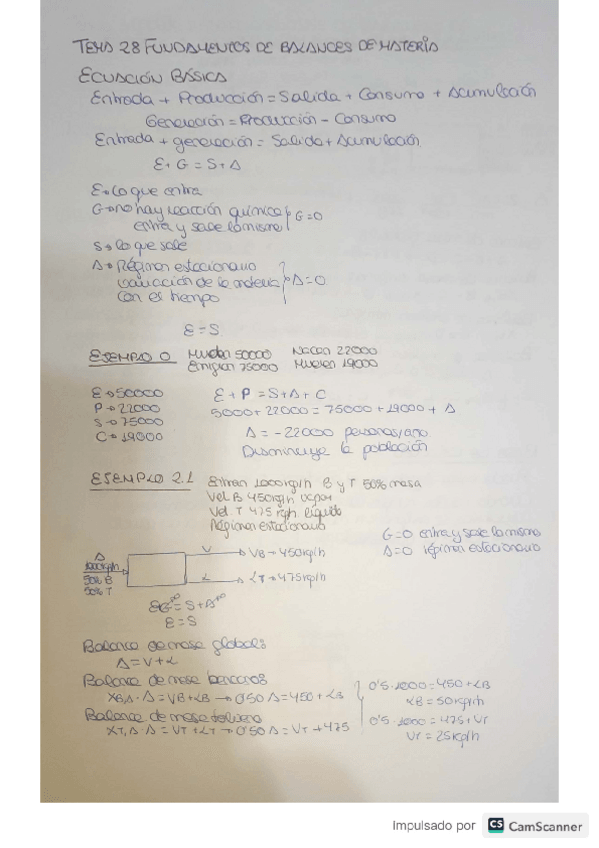 TEMA 28 FUNDAMENTOS DE BALANCES DE MATERIA
ECUACIÓN BÁSICA
Entrada + Producción = Salida + Consumo + Acumulación
Generación = Producción - Consumo
Entrada + generación = Salida + Acumulación
E + G = S + A
E → Lo que entra
G → no hay reacción química
entra y sale lo mismo
G=0
S → lo que sale
A → Régimen estacionario
variación de la materia
con es tiempo
A=0
E = S
EJEMPLO 0 Mudan 50000 Nacen 22000
Emigran 75000 Mueren 19000
E → 50000
P → 22000
S → 75000
C → 19000
E + P = S + A + C
5000+ 22000 = 75000 + 19000 + A
A = -22000 personas/año
Disminuye la población
EJEMPLO 2.1 Entran 1000kg/h B y T 50% masa
Vel B 450kg/h vapor
Vel T 475 kg/h líquido
Régimen estacionario
G=0 entra y sale lo mismo
A=0 régimen estacionario
A
1000kg/h
50% B
50% T
V
VB → 450kg/h
L
LT → 475kg/h
E+G = S+A
E = S
Balance de masa globals
A = V + L
Balance de masa benceno
XB,A · A = VB + LB → 0'50 A = 450 + LB
Balance de masa tolueno
XT,A · A = VT + LT → 0'50 A = VT + 475
0'5 · 1000 = 450 + LB
LB = 50kg/h
0'5 · 1000 = 475 + VT
VT = 25kg/h
Impulsado por CS CamScanner